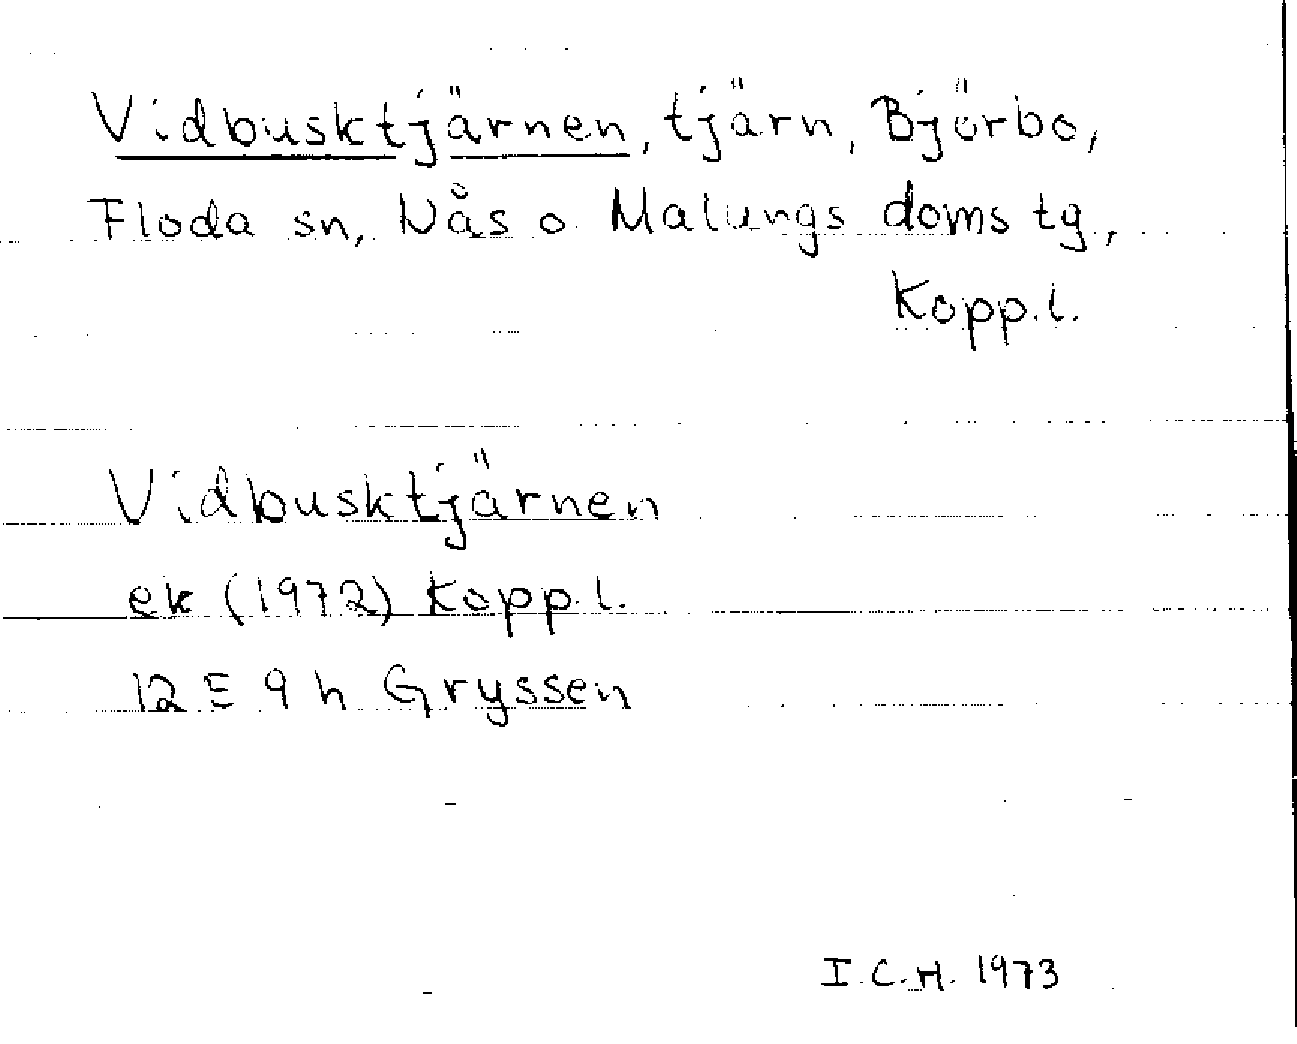 Vidbusktjärnen, tjärn, Björbo,
Floda sn, Nås o Malungs doms tg,
Kopp.l.
Vidbusktjärnen
ek (1972) Kopp.l.
12 E 9 h Gryssen
I.C.H. 1973